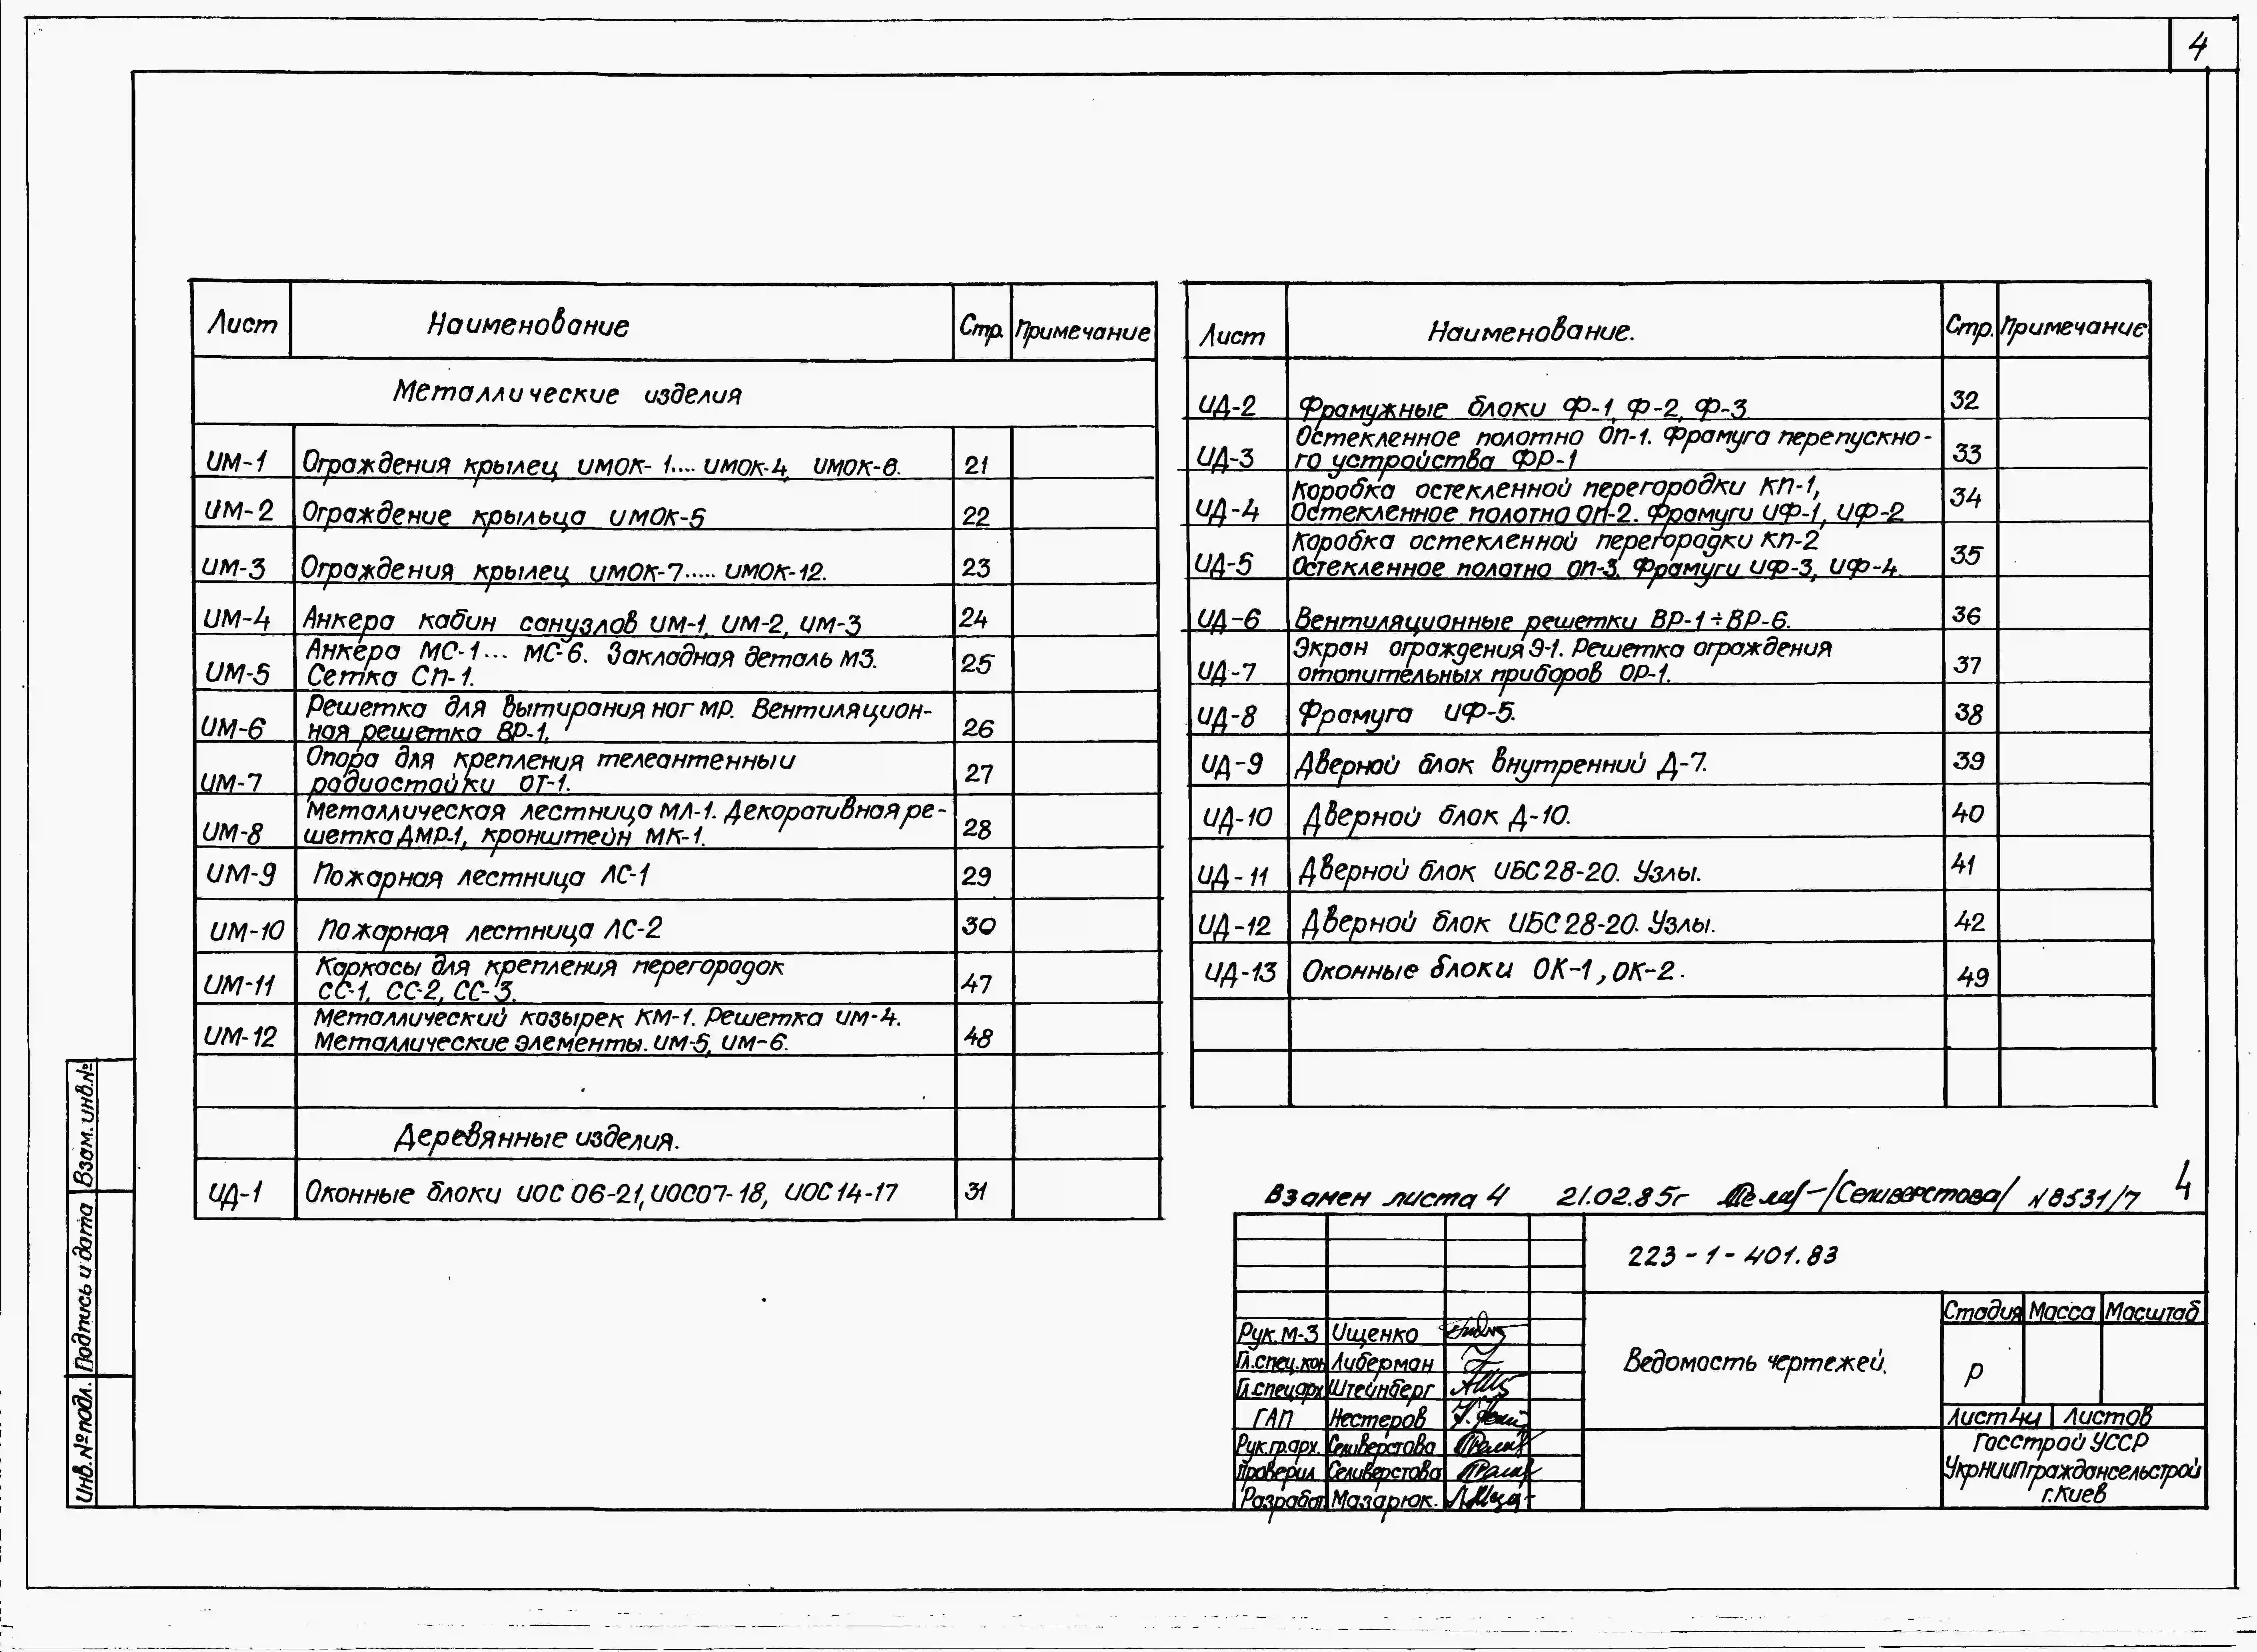 4
Лист Наименование Стр. Примечание
Металлические изделия
ИМ-1 Ограждения крылец ИМОК-1.... ИМОК-4, ИМОК-6. 21
ИМ-2 Ограждение крыльца ИМОК-5 22
ИМ-3 Ограждения крылец ИМОК-7..... ИМОК-12. 23
ИМ-4 Анкера кабин санузлов ИМ-1, ИМ-2, ИМ-3 24
ИМ-5 Анкера МС-1... МС-6. Закладная деталь М3.
Сетка СП-1. 25
ИМ-6 Решетка для вытирания ног МР. Вентиляцион-
ная решетка ВР-1. 26
ИМ-7 Опора для крепления телеантенны и
радиостойки ОТ-1. 27
ИМ-8 Металлическая лестница МЛ-1. Декоративная ре-
шетка ДМР-1, кронштейн МК-1. 28
ИМ-9 Пожарная лестница ЛС-1 29
ИМ-10 Пожарная лестница ЛС-2 30
ИМ-11 Каркасы для крепления перегородок
СС-1, СС-2, СС-3. 47
ИМ-12 Металлический козырек КМ-1. Решетка ИМ-4.
Металлические элементы. ИМ-5, ИМ-6. 48
Деревянные изделия.
ИД-1 Оконные блоки ИОС 06-21, ИОС07-18, ИОС14-17 31
Лист Наименование. Стр. Примечание
ИД-2 Фрамужные блоки Ф-1, Ф-2, Ф-3 32
ИД-3 Остекленное полотно ОП-1. Фрамуга перепускно-
го устройства ФР-1 33
ИД-4 Коробка остекленной перегородки КП-1,
Остекленное полотно ОП-2. Фрамуги ИФ-1, ИФ-2 34
ИД-5 Коробка остекленной перегородки КП-2
Остекленное полотно ОП-3. Фрамуги ИФ-3, ИФ-4. 35
ИД-6 Вентиляционные решетки ВР-1÷ВР-6. 36
ИД-7 Экран ограждения Э-1. Решетка ограждения
отопительных приборов ОР-1. 37
ИД-8 Фрамуга ИФ-5. 38
ИД-9 Дверной блок внутренний Д-7. 39
ИД-10 Дверной блок Д-10. 40
ИД-11 Дверной блок ИБС28-20. Узлы. 41
ИД-12 Дверной блок ИБС28-20. Узлы. 42
ИД-13 Оконные блоки ОК-1, ОК-2. 49
Взамен листа 4 21.02.85г /Селиверстова/ N8531/7 4
223-1-401.83
Рук. М-3 Ищенко
Гл.спец.кон Либерман
Гл.спец.арх Штейнберг
ГАП Нестеров
Рук.гр.арх. Селиверстова
Проверил Селиверстова
Разработ Мазарюк.
Ведомость чертежей.
Стадия Масса Масштаб
Р
Лист 4и Листов
Госстрой УССР
УкрНИИПграждансельстрой
г.Киев
Инв.№подл. Подпись и дата Взам.инв.№